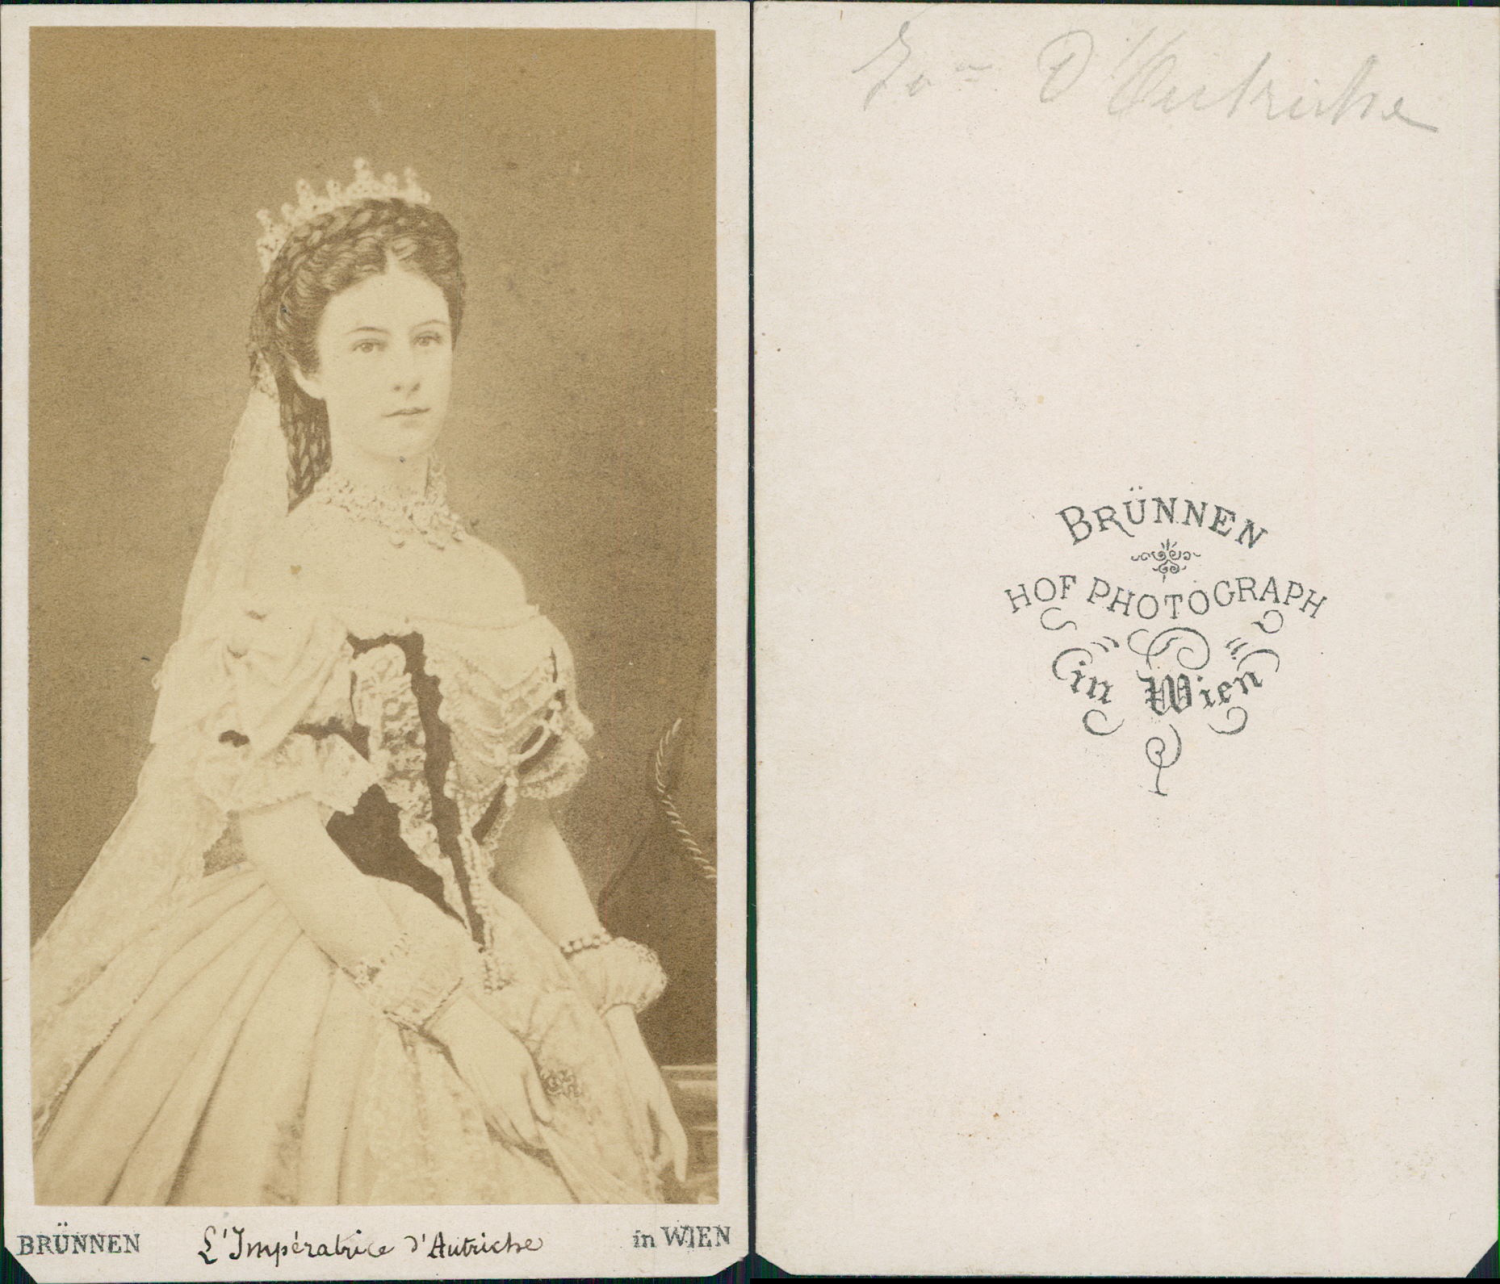 BRÜNNEN
L'Impératrice d'Autriche
in WIEN
D'Autriche
BRÜNNEN
HOF PHOTOGRAPH
in Wien